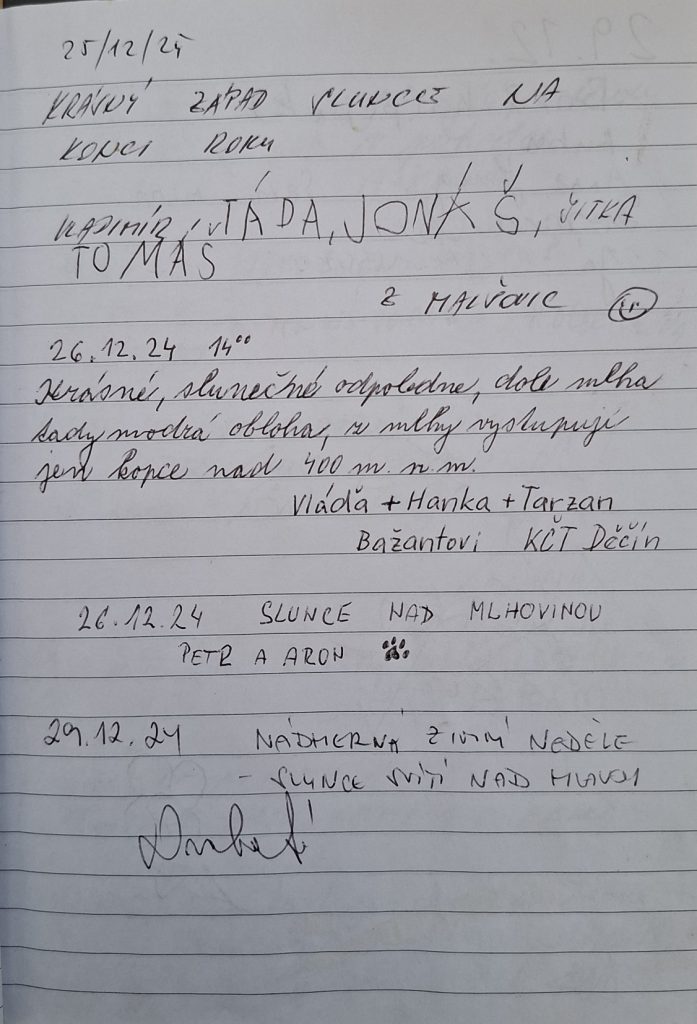 25/12/24
KRÁSNÝ ZÁPAD SLUNCE NA
KONCI ROKU
VLADIMÍR, TÁĎA, JONÁŠ, JITKA
TOMÁŠ
Z
26.12.24 14⁰⁰
Krásné, slunečné odpoledne, dole mlha
tady modrá obloha, z mlhy vystupují
jen kopce nad 400 m.n.m.
Vláďa + Hanka + Tarzan
Bažantovi KČT Děčín
26.12.24 SLUNCE NAD MLHOVINOU
PETR A ARON
29.12.24 NÁDHERNÁ ZIMNÍ NEDĚLE
- SLUNCE SVÍTÍ NAD MLHOU